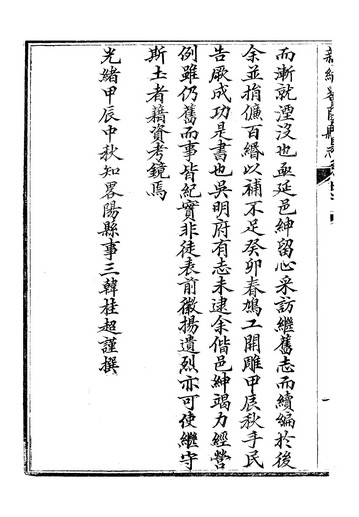 而漸就湮沒也亟延邑紳留心采訪繼舊志而續編於後
余並捐儀百緡以補不足癸卯春鳩工開雕甲辰秋手民
告厥成功是書也吳明府有志未逮余偕邑紳竭力經營
例雖仍舊而事皆紀實非徒表前徽揚遺烈亦可使繼守
斯土者藉資考鏡焉
光緒甲辰中秋知畧陽縣事三韓桂超謹撰